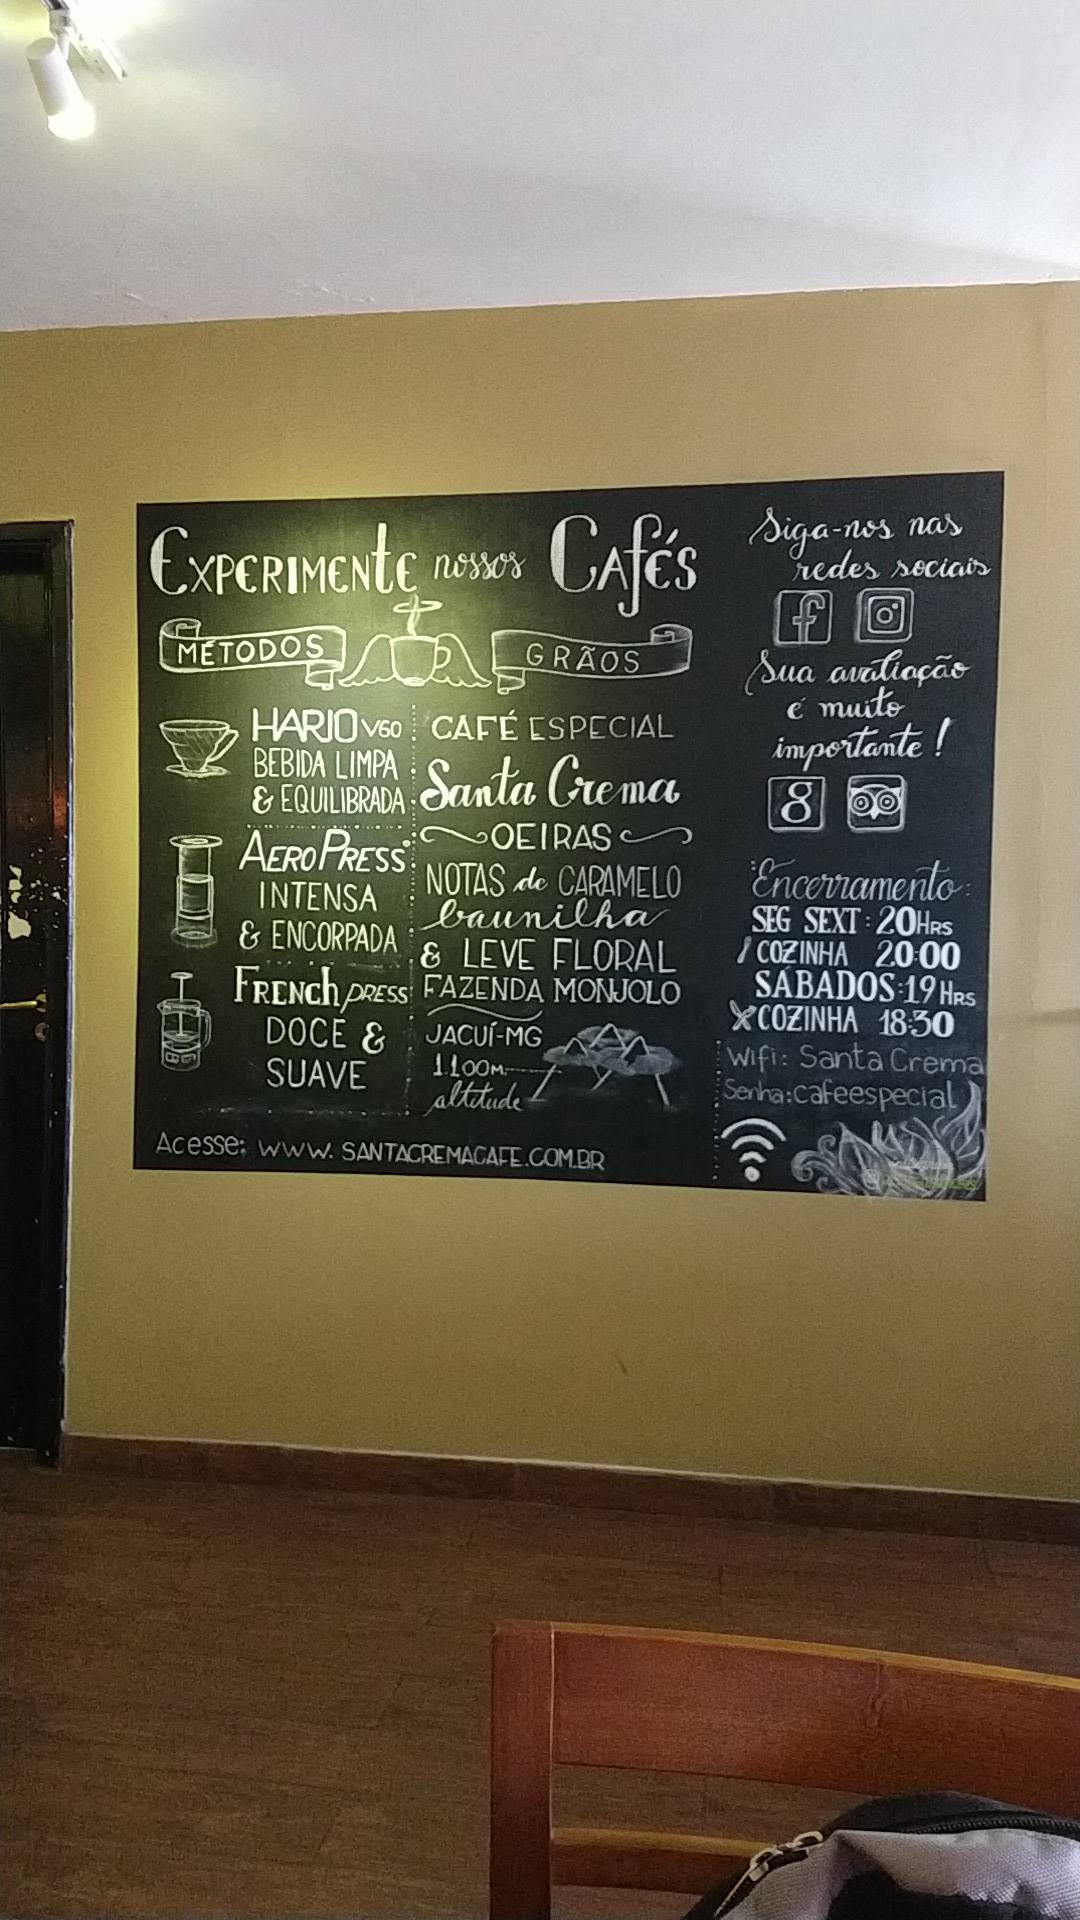 EXPERIMENTE nossos CAFÉS
MÉTODOS
HARIO V60
BEBIDA LIMPA
& EQUILIBRADA
AEROPRESS
INTENSA
& ENCORPADA
FRENCH PRESS
DOCE &
SUAVE
GRÃOS
CAFÉ ESPECIAL
Santa Crema
OEIRAS
NOTAS de CARAMELO
baunilha
& LEVE FLORAL
FAZENDA MONJOLO
JACUÍ-MG
1.100M
altitude
Acesse: WWW.SANTACREMACAFE.COM.BR
Siga-nos nas
redes sociais
f
Sua avaliação
é muito
importante!
8
Encerramento:
SEG SEXT: 20HRS
COZINHA 20:00
SÁBADOS: 19HRS
COZINHA 18:30
Wifi: Santa Crema
Senha: cafeespecial